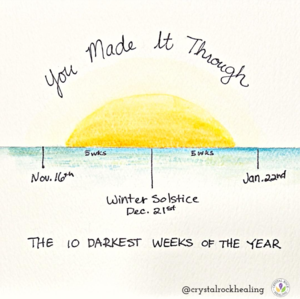 You Made It Through
5 wks 5 wks
Nov. 16th Jan. 22nd
Winter Solstice
Dec. 21st
THE 10 DARKEST WEEKS OF THE YEAR
@crystalrockhealing